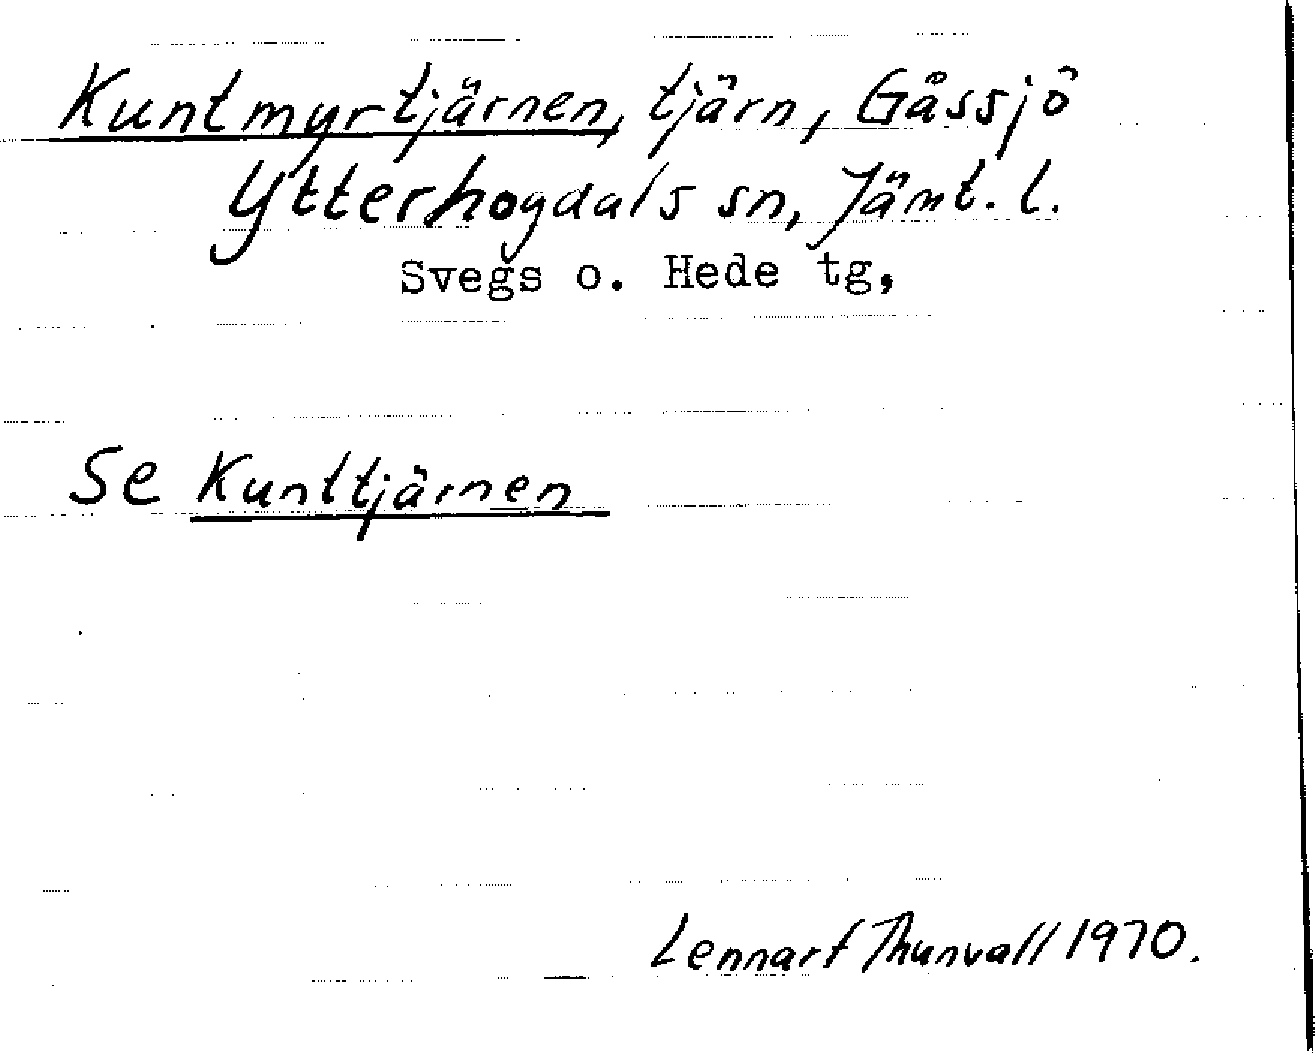 Kuntmyrtjärnen, tjärn, Gåssjö
Ytterhogdals sn, Jämt. l.
Svegs o. Hede tg,
Se Kunttjärnen
Lennart Thunvall 1970.